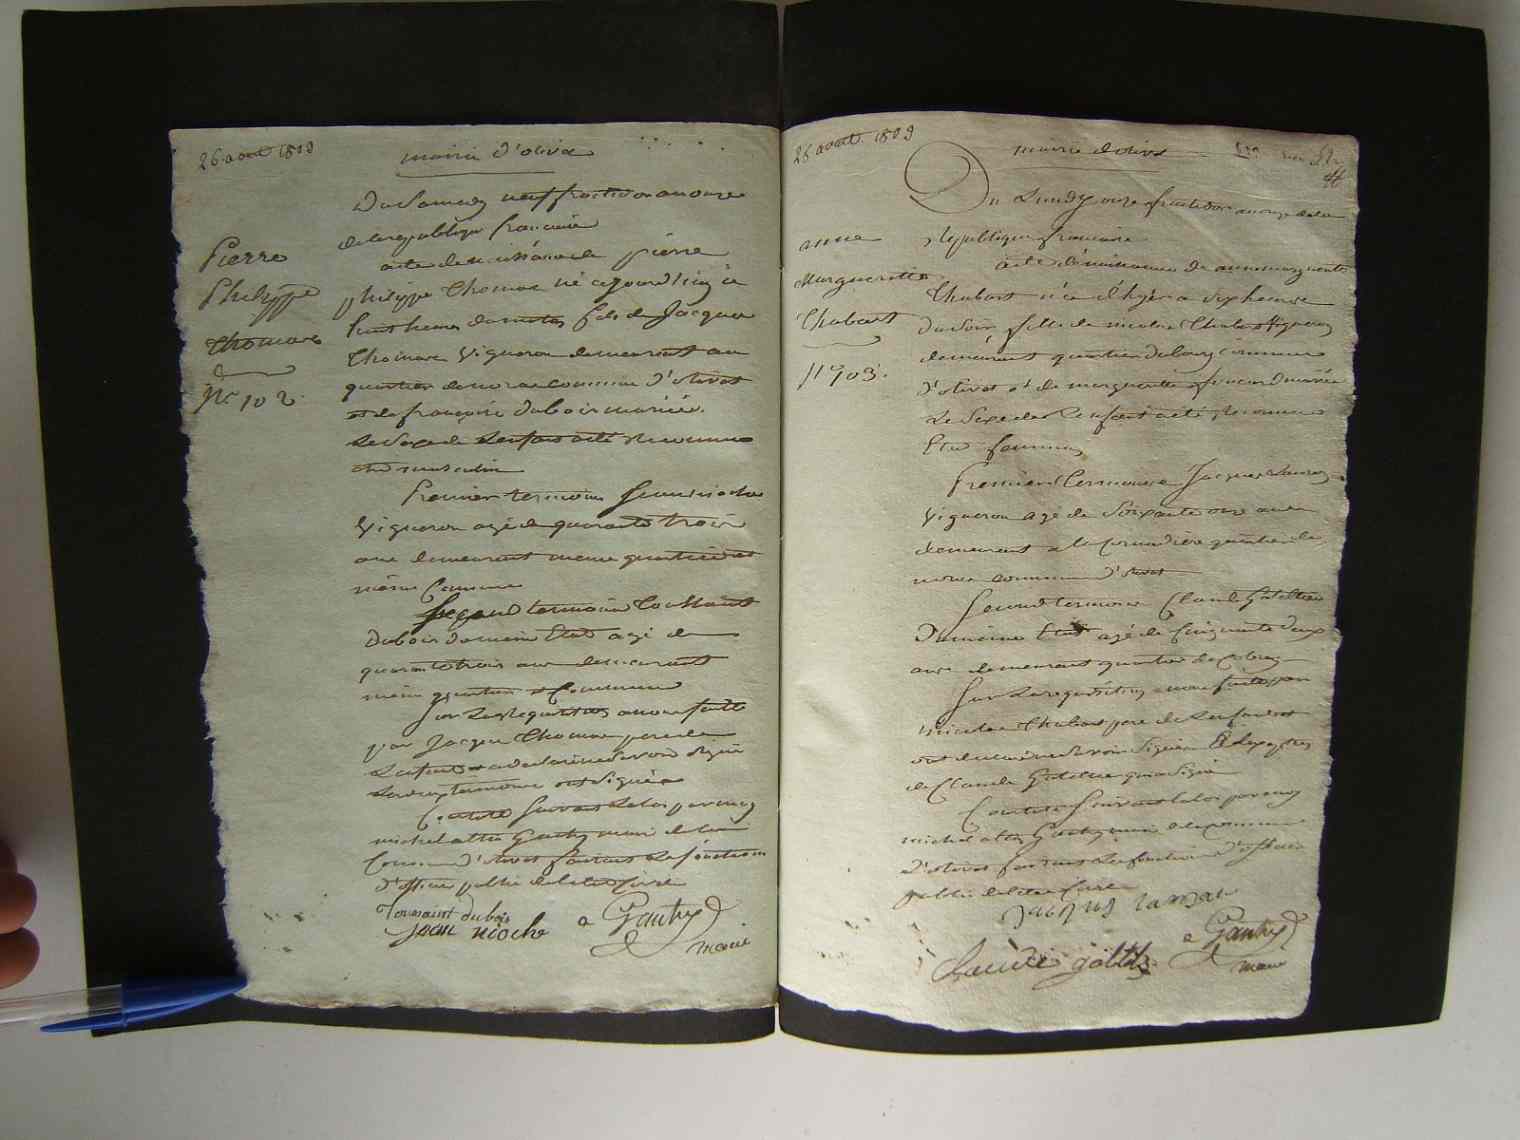 26 aout 1803
mairie d'olivet
Du Samedy neuf fructidor an onze
de la republique francaise
acte de naissance de pierre
philippe Thomas né ce jourd'huy à
huit heures du matin fils de Jacques
Thomas Vigneron demeurant au
quartier de commune d'olivet
et de françoise dubois mariés.
Le Sexe de L'enfant a été reconnu
etre masculin
Premier temoin Jean nioche
Vigneron agé de quarante trois
ans demeurant meme quartier et
même Commune
Second temoin Toussaint
Dubois du meme Etat agé de
quarante trois ans demeurant
meme quartier et Commune
Sur La requisition a nous faitte
par Jacques Thomas pere de
L'enfant a declaré ne Savoir Signer
Les deux temoins ont Signé
Constaté Suivant La loi par moy
michel Gautry maire de la
Commune d'olivet faisant Les fonctions
d'officier public de l'etat Civil
Toussaint dubois
Jean nioche
Gautry
maire
Pierre
Philippe
Thomas
No 102
26 aout 1803
mairie d'olivet
Du Lundy onze fructidor an onze de la
Republique francaise
acte de naissance de anne marguerite
Thubart née d'hyer a Six heures
du Soir fille de nicolas Thubart Vigneron
demeurant quartier du bourg commune
d'olivet et de marguerite mariés
Le Sexe de L'enfant a été reconnu
Etre feminin
Premier temoin Jacques
Vigneron agé de Soixante onze ans
demeurant a la quartier de
commune d'olivet
Second temoin Claude
Du même Etat agé de Cinquante deux
ans demeurant quartier de
Sur La requisition a nous faitte par
nicolas Thubart pere de L'enfant
ont declaré ne Savoir Signer
de Claude qui a Signé
Constaté Suivant La loi par moy
michel Gautry maire de la commune
d'olivet faisant Les fonctions d'officier
public de l'etat Civil
Gautry
maire
anne
Marguerite
Thubart
No 103.